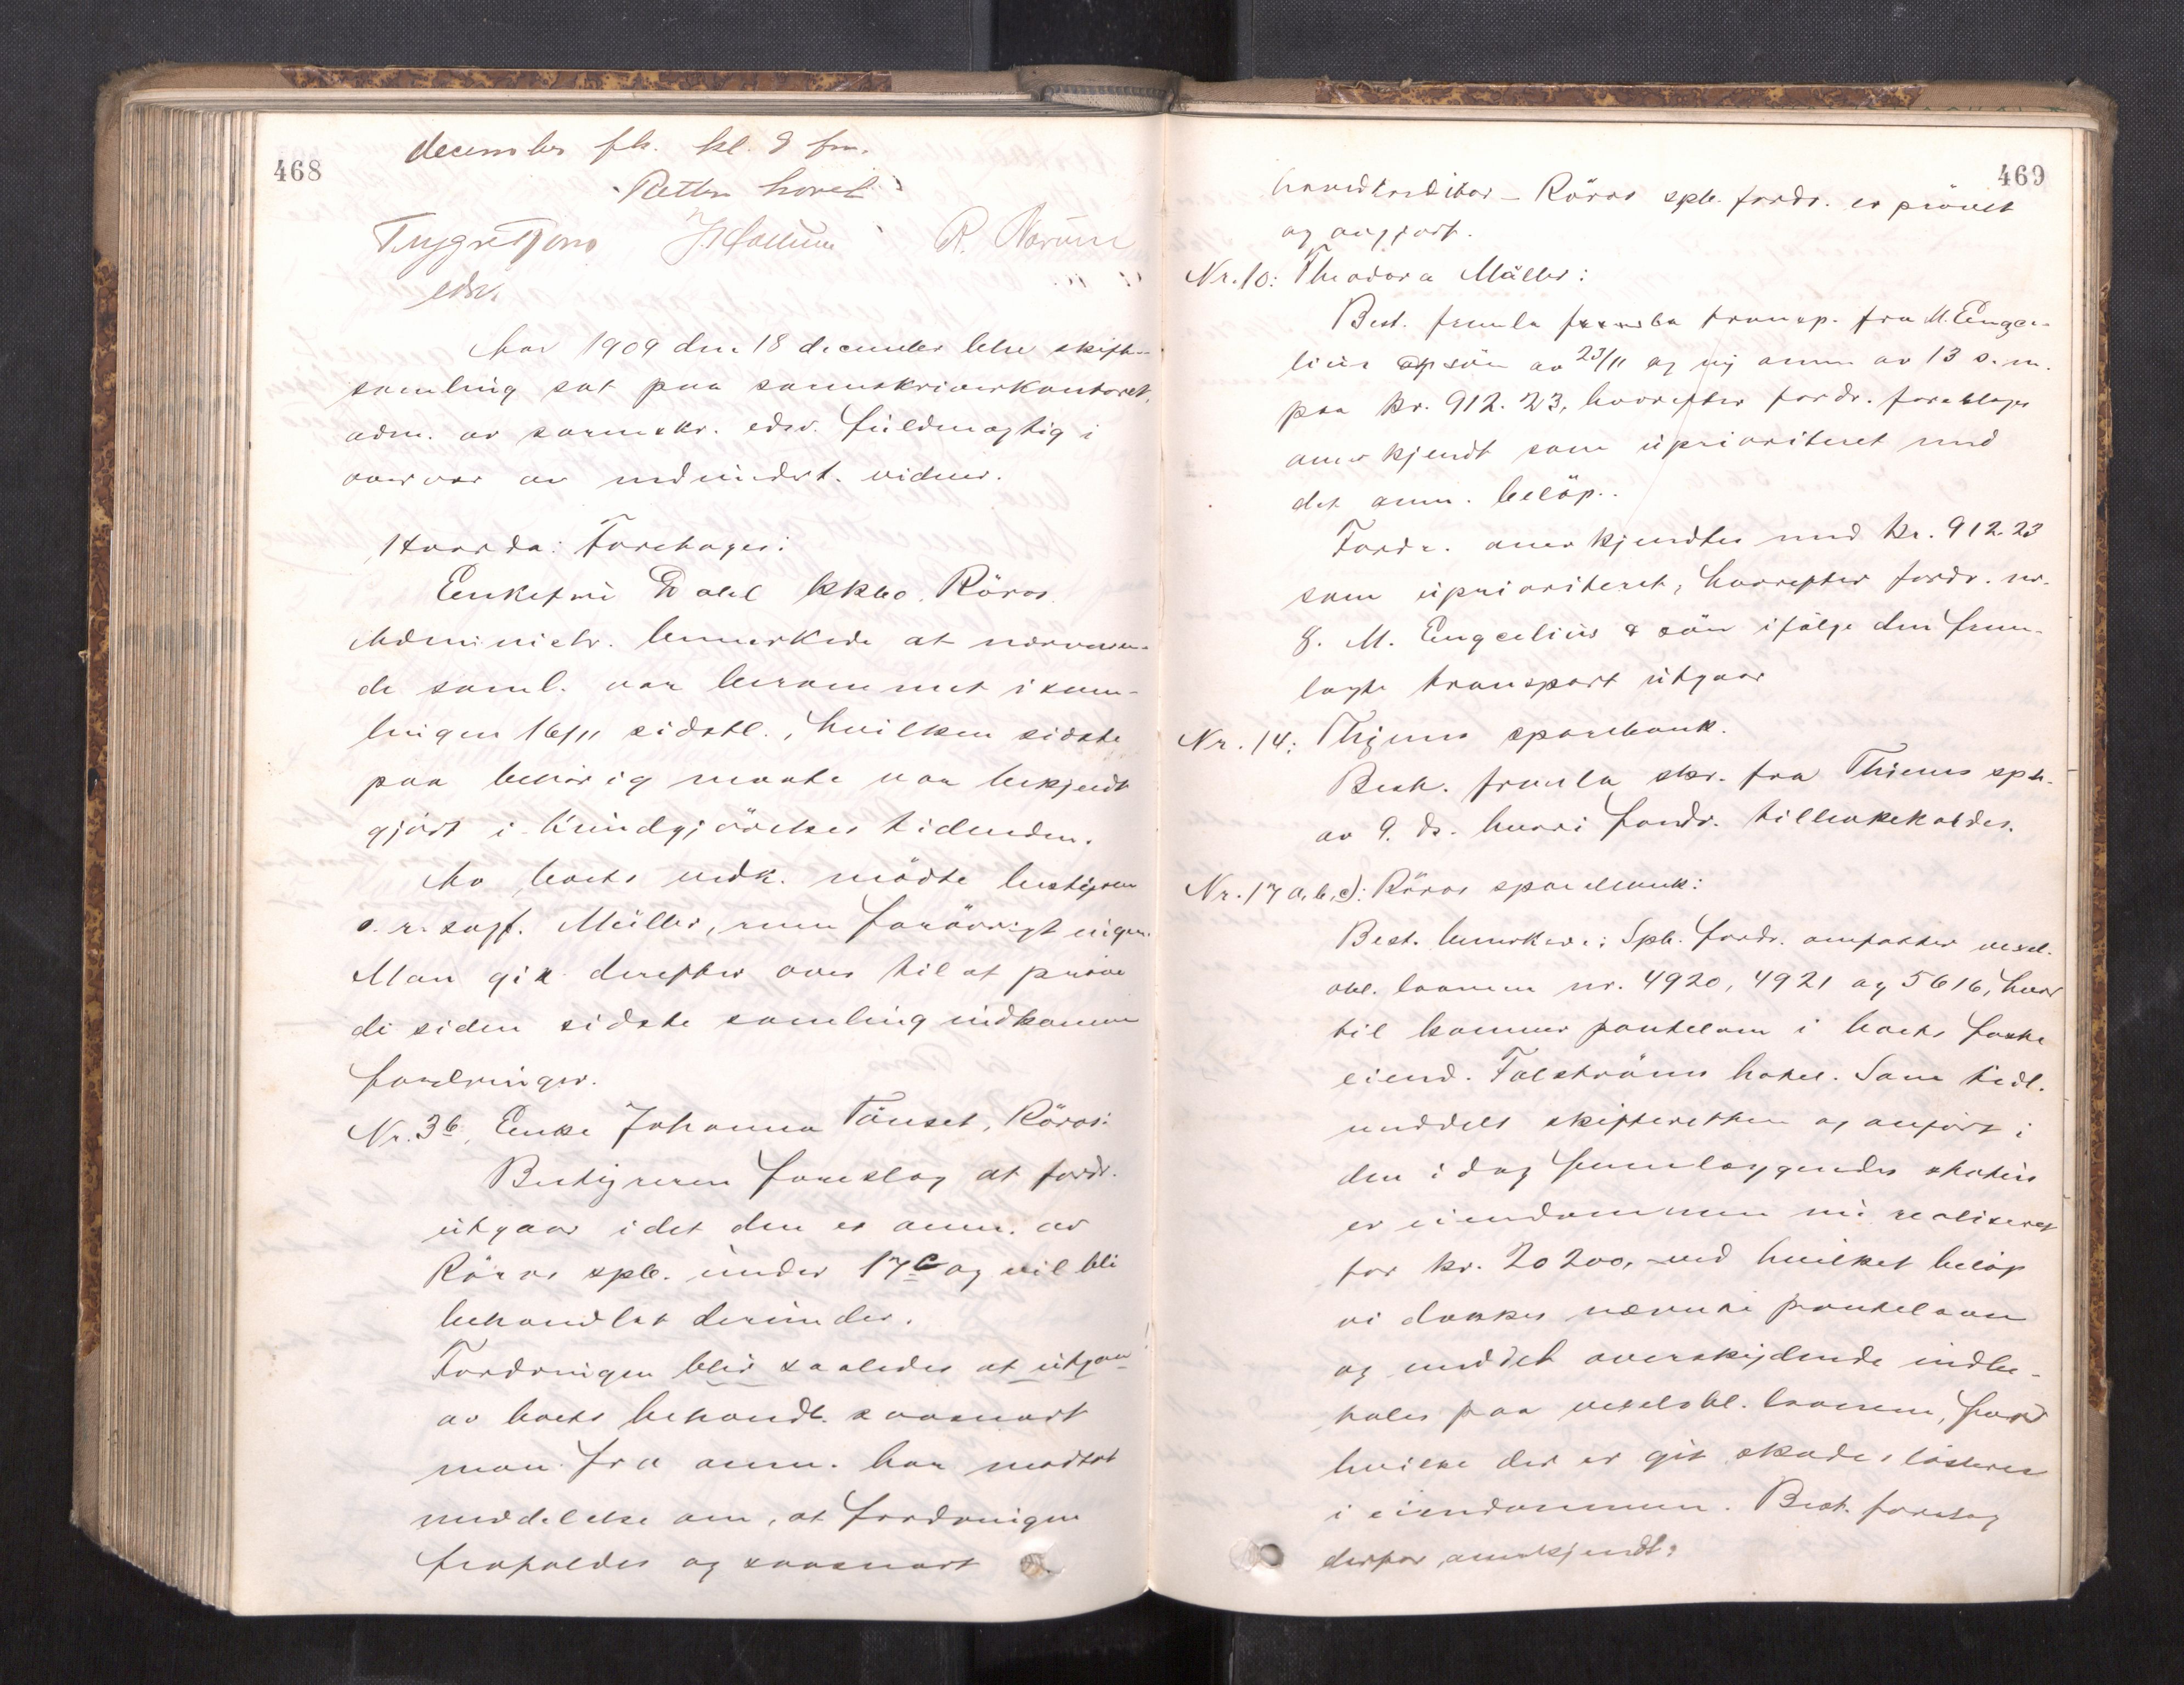 468
december fk. kl. 9 fm.
Retten hævet
Trygve
edsv.
Aar 1909 den 18 december blev skifte-
samling sat paa sorenskriverkontoret,
adm. av sorenskr. edsv. fuldmægtig i
overvær av undertegnet. vidner.
Hvorda: Foretages:
Enkefru Dahl kkbo. Röros.
Administr. bemerkede at nærværen-
de saml. var berammet i sam-
lingen 16/11 sidstl., hvilken sidste
paa behörig maate var bekjendt
gjört i Kundgjörelses tidenden.
Av boets vedk. mödte bestyreren
o. r. sagf. Müller, men forövrigt ingen.
Man gik derefter over til at pröve
de siden sidste samling indkomne
fordringer.
Nr. 3b, Enke Johanna Tönset, Röros:
Bestyreren foreslog at fordr.
utgaar idet den er anm. av
Röros spb. under 17c og vil bli
behandlet derunder.
Fordringen blir saaledes at utgaa
av boets behandl. saasnart
man fra anm. har modtat
meddelelse om, at fordringen
frafaldes og saasnart
469
hovedkreditor - Röros spb. fordr. er prövet
og avgjort.
Nr. 10: Theodora Müller:
Best. fremla transp. fra M. Engze-
lius & sön av 23/11 og ny anm. av 13 s. m.
paa kr. 912.23, hvorefter fordr. foreslages
anerkjendt som uprioriteret med
det anm. belöp.
Fordr. anerkjendtes med kr. 912.23
som uprioriteret, hvorefter fordr. nr.
8. M. Engzelius & sön ifölge den frem-
lagte transport utgaar
Nr. 14: Thjems sparebank.
Besh. fremla skr. fra Thiems spb.
av 9. ds. hvori fordr. tilbakekaldes.
Nr. 17 a, b, c): Röros sparebank:
Best. bemerker: Spb. fordr. omfatter vexel-
obl. laanene nr. 4920, 4921 og 5616, hvor
til kommer pantelaan i boets faste
eiend. Falströms hotel. Som tidl.
meddelt skifteretten og anfört i
den i dag fremlæggendes status
er eiendommen nu realiseret
for kr. 20 200, ved hvilket belöp
vi dækker nævnte pantelaan
og med det overskydende indbe-
tales paa vexelobl. laanene, for
hvilke der er git skadeslösbrev
i eiendommen. Best. foreslog
derfor anerkjendt: